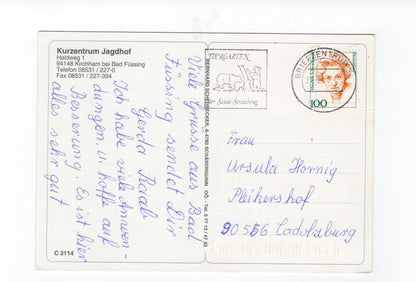 Kurzentrum Jagdhof
Haidweg 1
94148 Kirchham bei Bad Füssing
Telefon 08531 / 227-0
Fax 08531 / 227-394
Viele Grüsse aus Bad
Füssing sendet Dir
Gerda Raab
Ich habe viele Anwen-
dungen, u. hoffe auf
Besserung. Es ist hier
alles sehr gut
C 3114
TIERGARTEN
der Stadt Straubing
BRIEFZENTRUM
100
Frau
Ursula Hornig
Pleikershof
90556 Cadolzburg